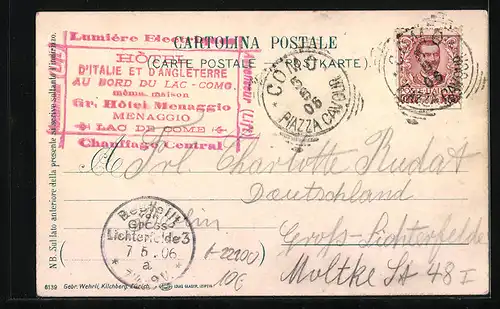 CARTOLINA POSTALE
(CARTE POSTALE - POSTKARTE)
Lumière Electrique
HÔTEL
D'ITALIE ET D'ANGLETERRE
AU BORD DU LAC-COMO.
même maison
Gr. Hôtel Menaggio
MENAGGIO
LAC DE COME
Chauffage Central
(LIFT)
COMO
06
PIAZZA CAVOUR
COMO
06
CAVOUR
Frl Charlotte Rudat
Deutschland
Berlin
Groß-Lichterfelde
Moltke St 48 I
Bestellt
vom
Gross-
Lichterfelde 3
7 5. 06
a.
A 22200
10€
N B. Sul lato anteriore della presente si scrive soltanto l'indirizzo.
6139 Gebr. Wehrli, Kilchberg, Zürich.